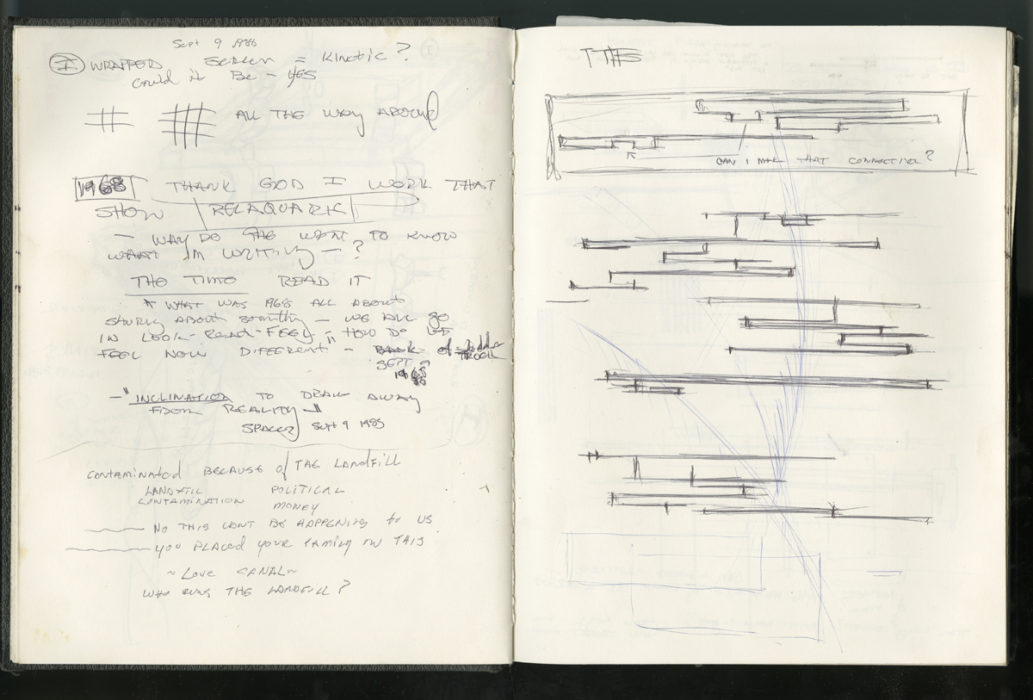 Sept 9 1986
I WRAPPED SCREEN = KINETIC?
COULD IT BE - YES
ALL THE WAY AROUND
1968 THANK GOD I WORK THAT
SHOW RELAQUARIK
- WHY DO THE WANT TO KNOW
WHAT IM WRITING - ?
THE TIMES READ IT
" WHAT WAS 1968 ALL ABOUT
ABOUT - WE ALL GO
IN LOOK - READ - FEEL - " HOW DO WE
FEEL NOW DIFFERENT " - of
SEPT 9
- " INCLINATION TO DRAW AWAY
FROM REALITY - "
SPACES Sept 9 1985
CONTAMINATED BECAUSE of THE LANDFILL
LANDFILL POLITICAL
CONTAMINATION MONEY
NO THIS CANT BE HAPPENING to US
YOU PLACED YOUR FAMILY ON THIS
~ Love CANAL ~
WHO RUNS THE LANDFILL ?
CAN I MAKE THAT CONNECTIVE ?